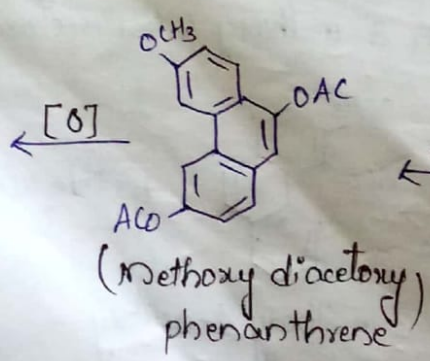 OCH3
OAC
[O]
ACO
(Methoxy diacetoxy)
phenanthrene